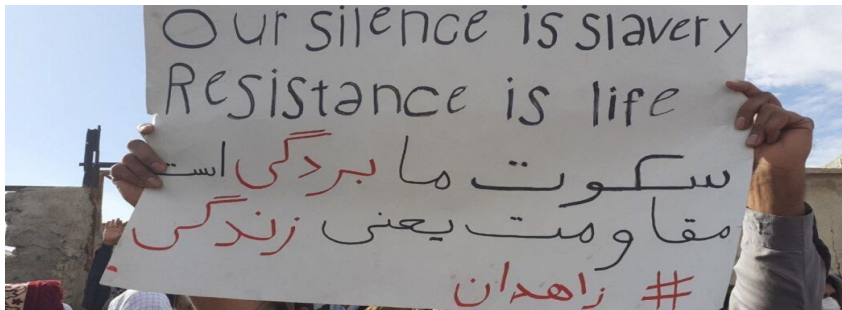 Our silence is slavery
Resistance is life
سکوت ما بردگی است
مقاومت یعنی زندگی.
# زاهدان